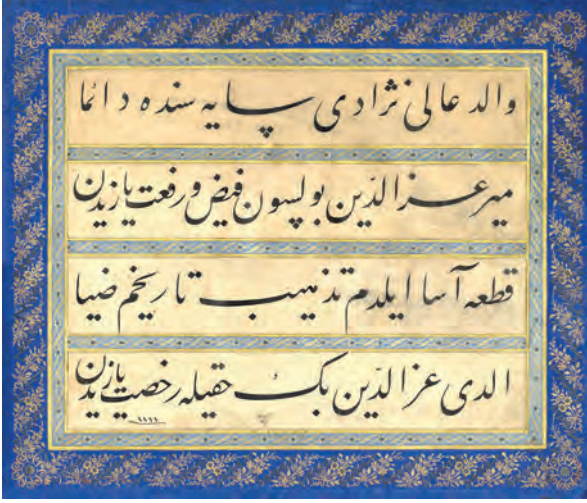 والد عالی نژادی سایه سنده دائما
میر عزّالدّین بولسون فیض و رفعت یازیدن
قطعه آسا ایلدم تذهیب تاریخم ضیا
الدی عزّالدّین بك حقیله رخصت یازیدن